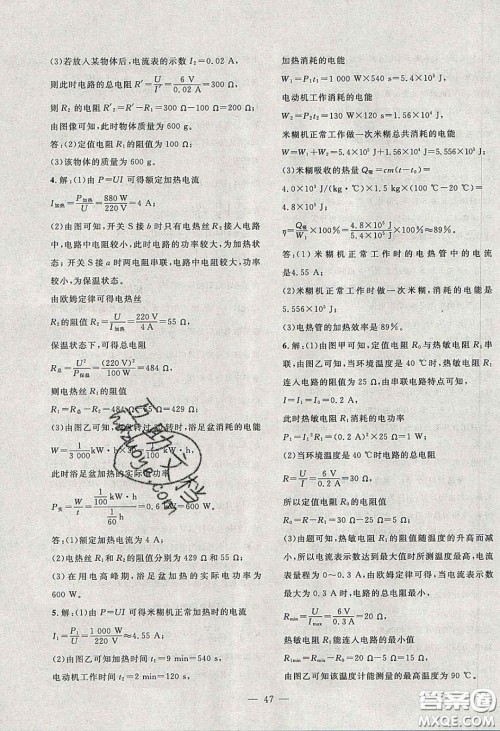 (3)若放入某物体后,电流表的示数 I₂=0.02 A,
则此时电路的总电阻 R′=U/I′=6 V/0.02 A=300 Ω,
则 R₂ 的电阻 R₂=R′-R₁=300 Ω
由图像可知,此时物体质量为 600 g.
答:(2)定值电阻 R₁
(3)该物体的质量为 600 g.
4.解:(1)由 P=UI 可得额定加热电流
I加热=P加热/U=880 W/220 V=4 A;
(2)由图可知,开关 S 接 b 时只有电热丝 R₂ 接入电路
中,电路中的电阻最小,此时电路的功率较大,为加热
状态;开关 S 接 a 时两电阻串联,电路中的功率较小,
为保温状态.
由欧姆定律可得电热丝
R₂ 的阻值 R₂=U/I加热=220 V/4 A=55 Ω,
保温状态下,可得总电阻
R总=U²/P保温=(220 V)²/100 W=484 Ω,
则电热丝 R₁ 的阻值
R₁=R总-R₂=484 Ω-55 Ω=429 Ω;
(3)由图乙可知,
时,浴足盆加热消耗的电能
此时浴足盆加热的实际电功率
P实=W/t=
=600 W.
答:(1)额定加热电流为 4 A;
(2)电热丝 R₁ 和 R₂ 的阻值分别为 429 Ω 和 55 Ω;
(3)在用电高峰期,浴足盆加热的实际电功率为
600 W.
5.解:(1)由 P=UI 可得米糊机正常加热时的电流
I=P₁/U=1 000 W/220 V≈4.55 A;
(2)由图乙可知加热时间 t₁=9 min=540 s,
电动机工作时间 t₂=2 min=120 s,
加热消耗的电能
W₁=P₁t₁=1 000 W×540 s=5.4×10⁵ J,
电动机工作消耗的电能
W₂=P₂t₂=130 W×120 s=1.56×10⁴ J,
米糊机正常工作做一次米糊总共消耗的电能
W=W₁+W₂=5.4×10⁵ J+1.56×10⁴ J=5.556×10⁵ J;
(3)米糊吸收的热量 Q吸=cm(t-t₀)=
4.0×10³ J/(kg·℃)×1.5 kg×(100 ℃-20 ℃)=
4.8×10⁵ J,
η=Q吸/W₁=4.8×10⁵ J/5.4×10⁵ J×100%≈89%.
答:(1)米糊机正常工作时的电热管中的电流是
4.55 A;
(2)米糊机正常工作时做一次米糊,消耗的电能是
5.556×10⁵ J;
(3)电热管的加热效率是 89%.
6.解:(1)由图甲可知,定值电阻 R₀ 与热敏电阻 R₁ 串
联;由图乙可知,当环境温度是 40 ℃时,热敏电阻 R₁
连入电路的阻值为 25 Ω,由串联电路特点可知,
I=I₁=0.2 A,
此时热敏电阻 R₁ 消耗的电功率
(2)当环境温度是 40 ℃时,电路的总电阻
R=U/I=6 V/0.2 A=30 Ω,
所以定值电阻 R₀ 的电阻值
R₀=R-R₁=30 Ω-25 Ω=5 Ω;
(3)由图乙可知,热敏电阻 R₁ 的阻值随温度的升高而减
小,所以,电流表示数达到最大值时所测温度最高,已知
电流表的量程为 0~0.3 A,由欧姆定律可得,当电流表示
数为 0.3 A 时,电路的总电阻最小
Rmin=U/Imax=6 V/0.3 A=20 Ω,
热敏电阻 R₁ 能连入电路的最小值
R₁min=Rmin-R₀=20 Ω-5 Ω=15 Ω,
由图乙可知该温度计能测量的最高温度为 90 ℃.
— 47 —
答案圈
MXQE.COM